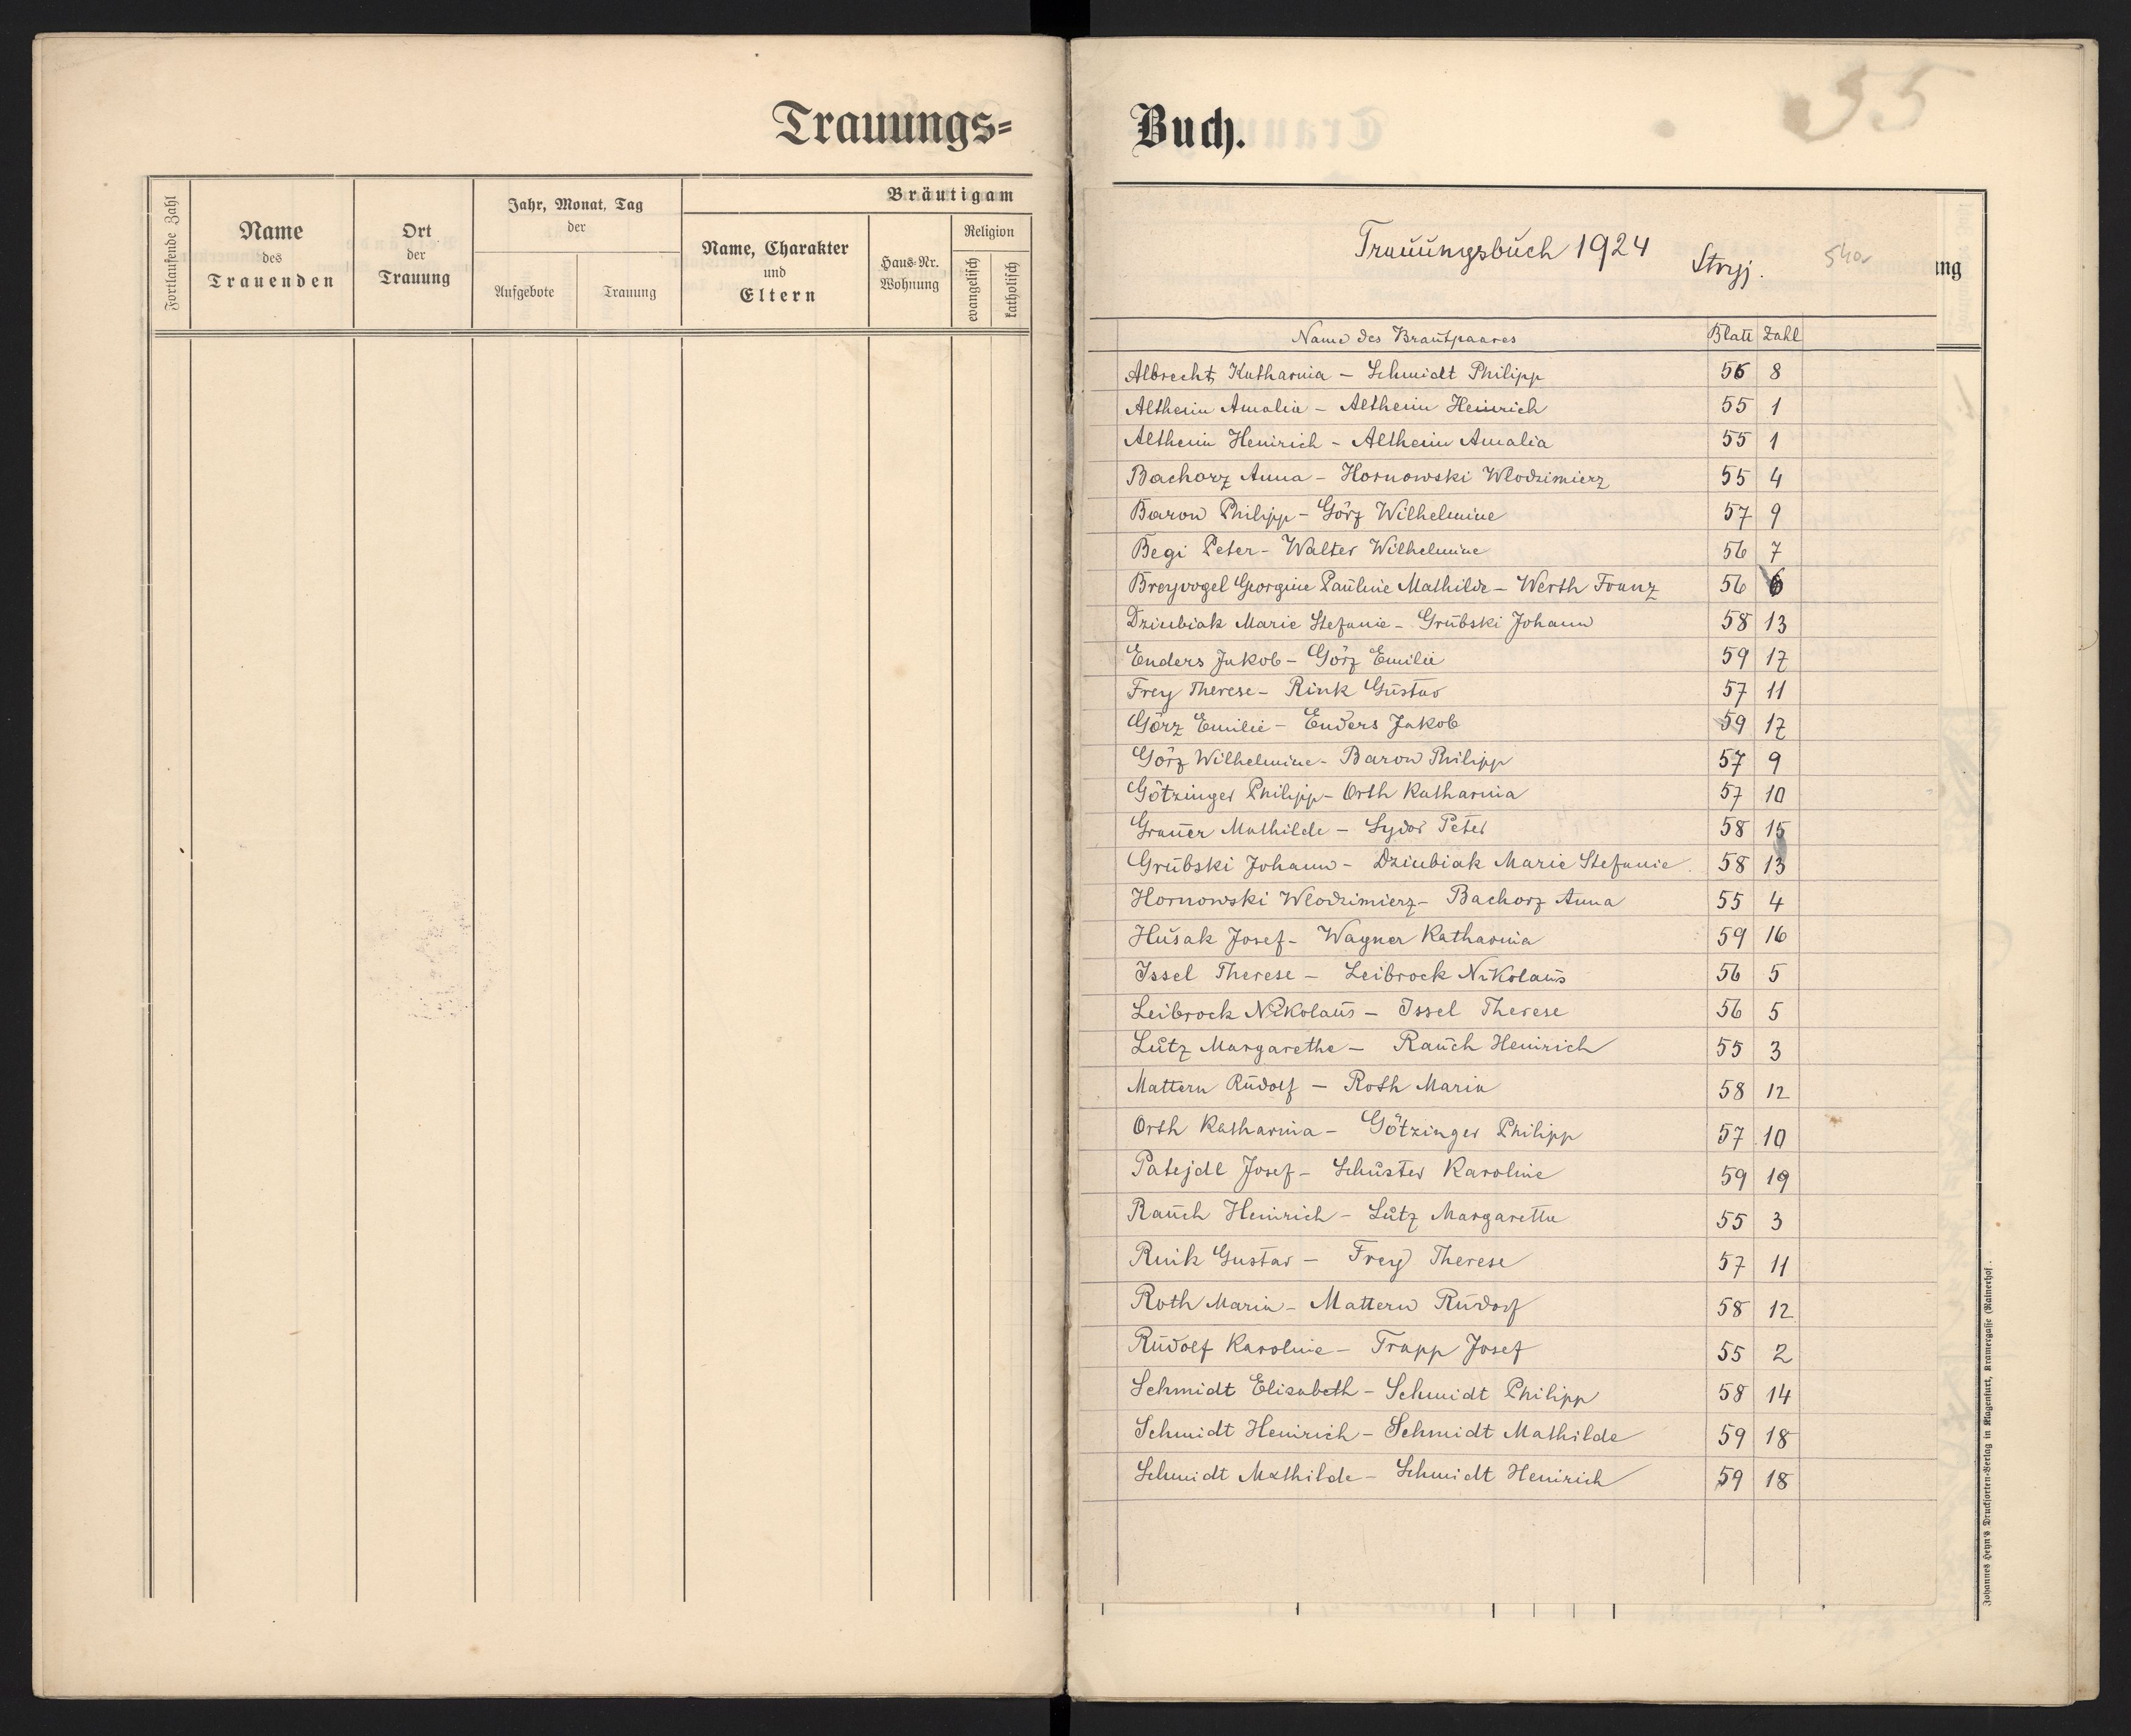 Trauungs=
Fortlaufende Zahl
Name
des
Trauenden
Ort
der
Trauung
Jahr, Monat, Tag
der
Aufgebote
Trauung
Bräutigam
Name, Charakter
und
Eltern
Haus-Nr.
Wohnung
Religion
evangelisch
katholisch
Buch.
55
Trauungsbuch 1924 Stryj.
54a
ung
Name des Brautpaares Blatt Zahl
Albrecht Katharina – Schmidt Philipp 56 8
Altheim Amalia – Altheim Heinrich 55 1
Altheim Heinrich – Altheim Amalia 55 1
Bachorz Anna – Hornowski Wlodzimierz 55 4
Baron Philipp – Görz Wilhelmine 57 9
Begi Peter – Walter Wilhelmine 56 7
Breyvogel Georgine Pauline Mathilde – Werth Franz 56 6
Dziubiak Marie Stefanie – Grubski Johann 58 13
Enders Jakob – Görz Emilie 59 17
Frey Therese – Rink Gustav 57 11
Görz Emilie – Enders Jakob 59 17
Görz Wilhelmine – Baron Philipp 57 9
Götzinger Philipp – Orth Katharina 57 10
Grauer Mathilde – Sydor Peter 58 15
Grubski Johann – Dziubiak Marie Stefanie. 58 13
Hornowski Wlodzimierz – Bachorz Anna 55 4
Husak Josef – Wagner Katharina 59 16
Issel Therese – Leibrock Nikolaus 56 5
Leibrock Nikolaus – Issel Therese 56 5
Lutz Margarethe – Rauch Heinrich 55 3
Mattern Rudolf – Roth Maria 58 12
Orth Katharina – Götzinger Philipp 57 10
Patejdl Josef – Schuster Karoline 59 19
Rauch Heinrich – Lutz Margarethe 55 3
Rink Gustav – Frey Therese 57 11
Roth Maria – Mattern Rudolf 58 12
Rudolf Karoline – Trapp Josef 55 2
Schmidt Elisabeth – Schmidt Philipp 58 14
Schmidt Heinrich – Schmidt Mathilde 59 18
Schmidt Mathilde – Schmidt Heinrich 59 18
Johannes Heyn's Drucksorten-Verlag in Klagenfurt, Kramergasse (Rainerhof.